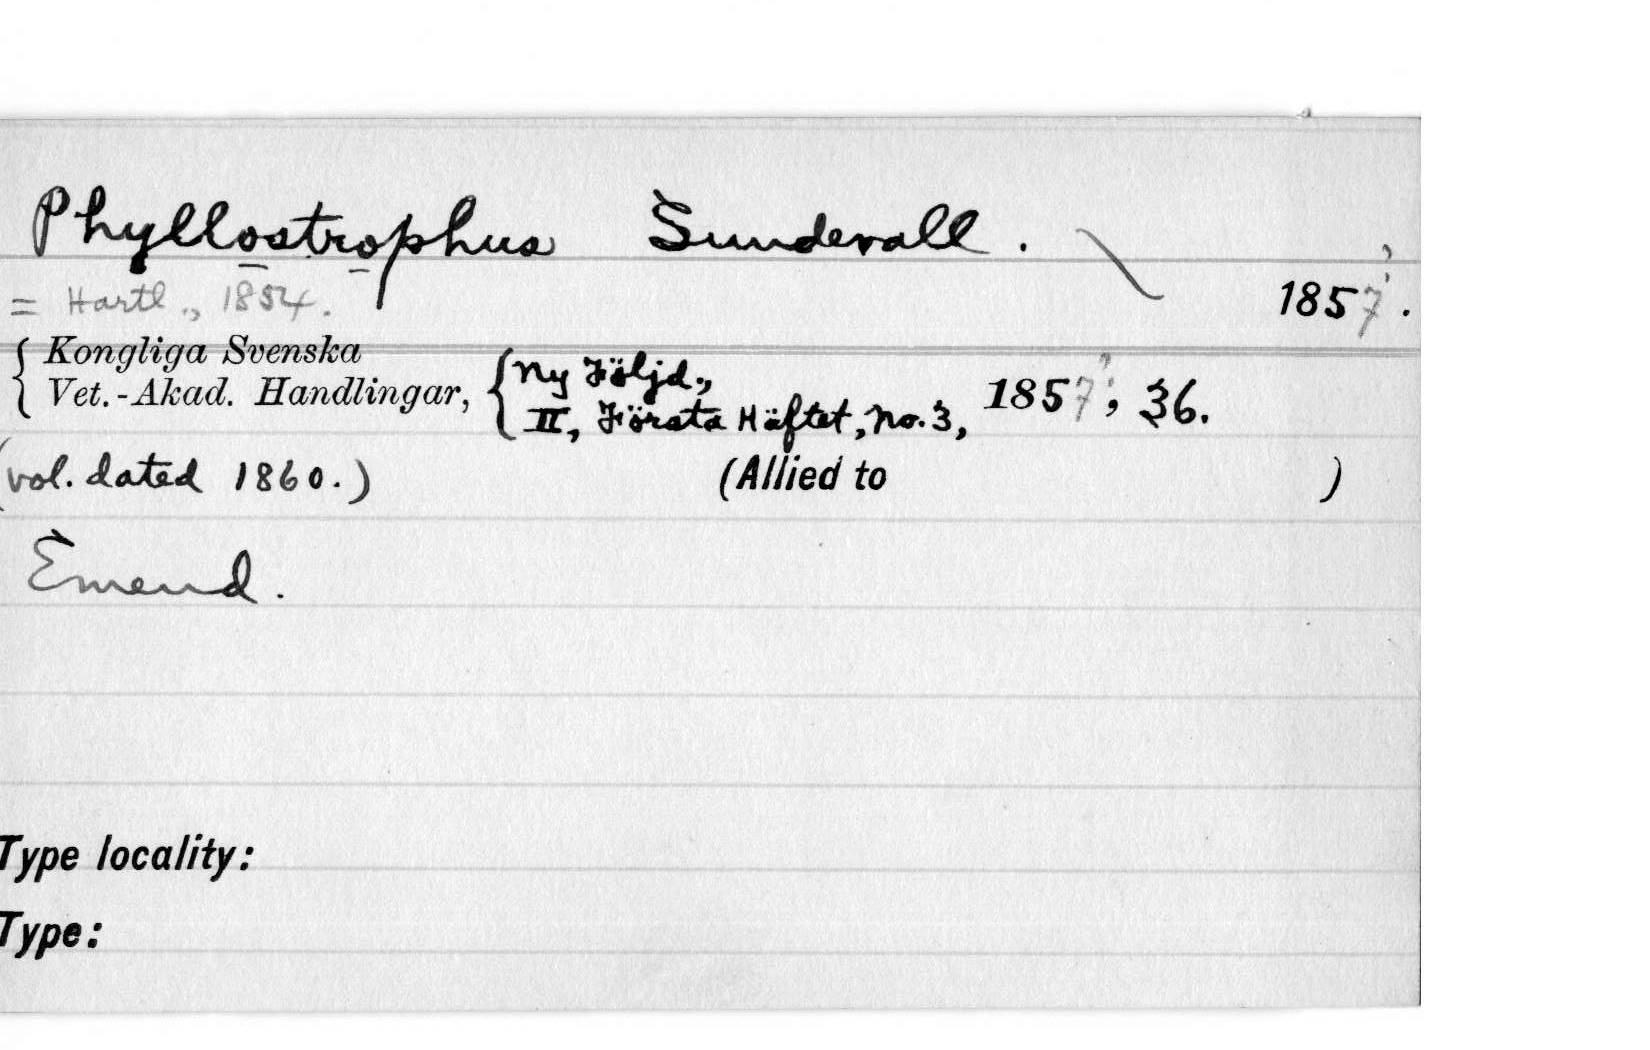 Phyllostrophus Sundevall.
= Hartl., 1854. 1857.
Kongliga Svenska Ny Följd.,
Vet.-Akad. Handlingar, II, Första Häftet, No. 3, 1857, 36.
(vol. dated 1860.) (Allied to )
Emend.
Type locality:
Type: